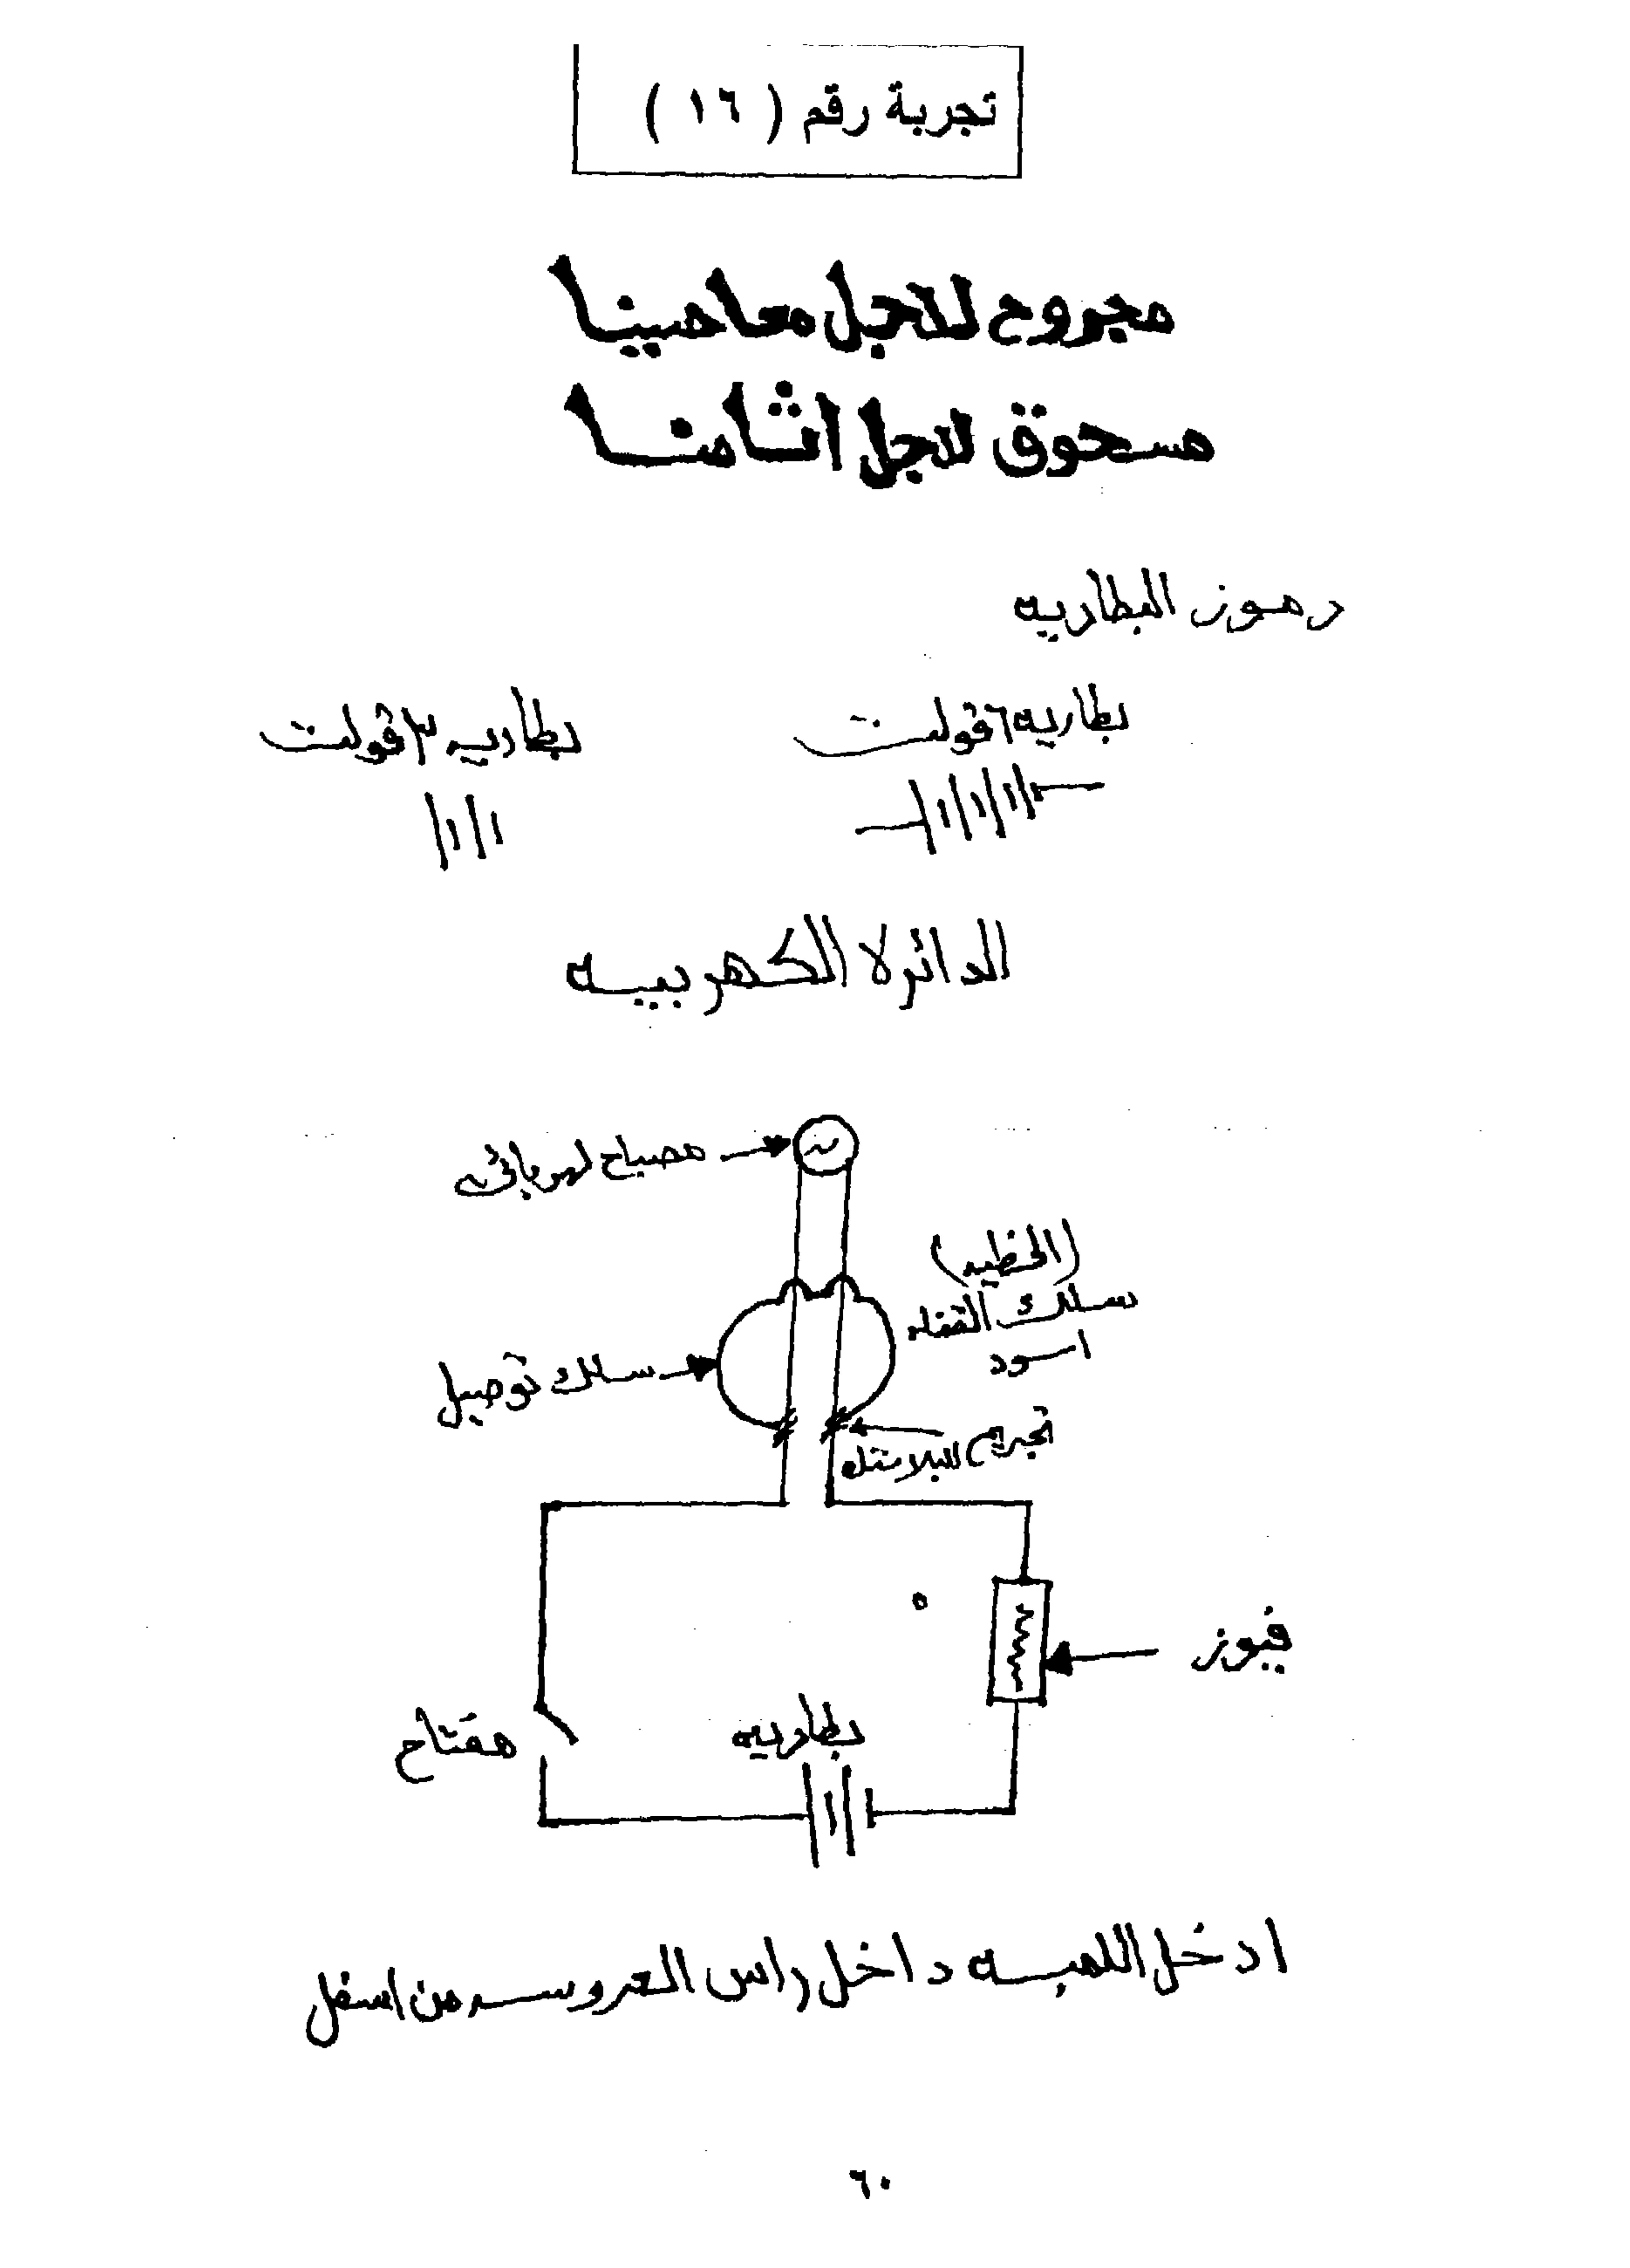 تجربة رقم ( ١٦ )
مجروح لاجل معاصينا
مسحوق لاجل اثامنا
رموز البطاريه
بطاريه ٦ ڤولت
بطاريه ٣ ڤولت
الدائرة الكهربيه
مصباح كهربائى
(الخطيه)
سلك القضاء
اسود
سلك توصيل
فيوز
بطاريه
مفتاح
ادخل اللمبه داخل راس العروسه من اسفل
٦٠